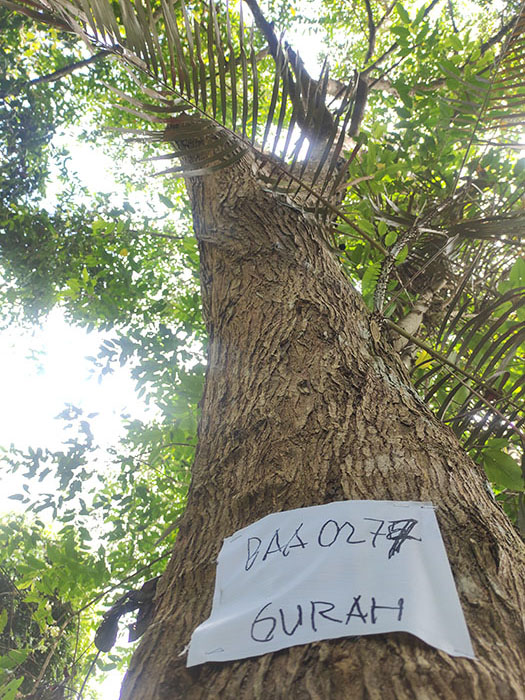 DAA0277
GURAH